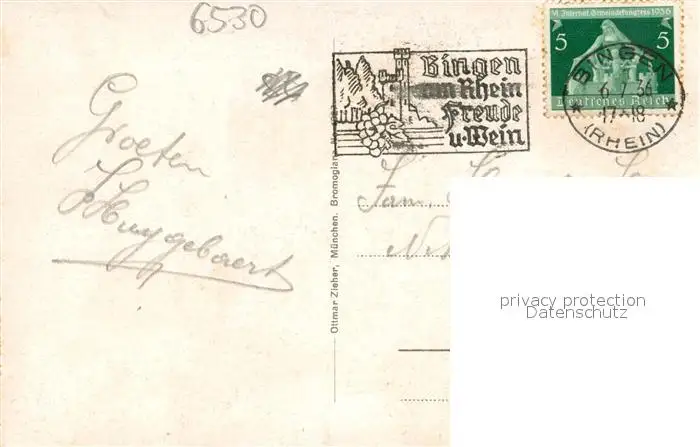 6530
VI. Internat. Gemeindekongress 1936
5 5
Deutsches Reich
BINGEN
6.7.36
17-18
(RHEIN)
Bingen
am Rhein
Freude
u. Wein
Groeten
Huygebaert
Fam.
Ottmar Zieher, München.
privacy protection
Datenschutz